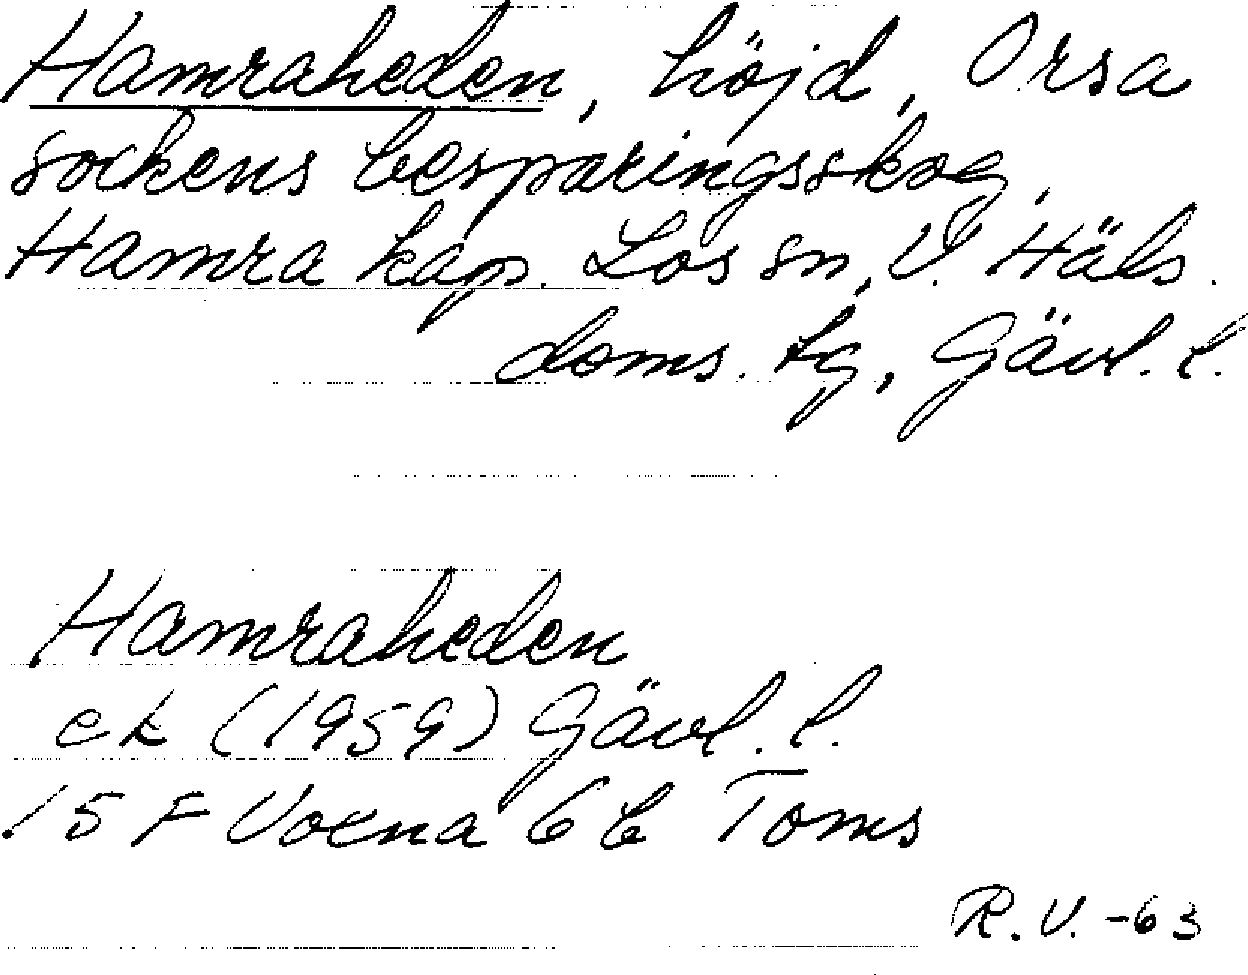 Hamraheden, höjd, Orsa
sockens besparingsskog,
Hamra kap. Los sn, V. Häls.
doms. tg, Gävl. l.
Hamraheden
ek (1959) Gävl. l.
15 F Voxna 6 b Toms
R. V. -63